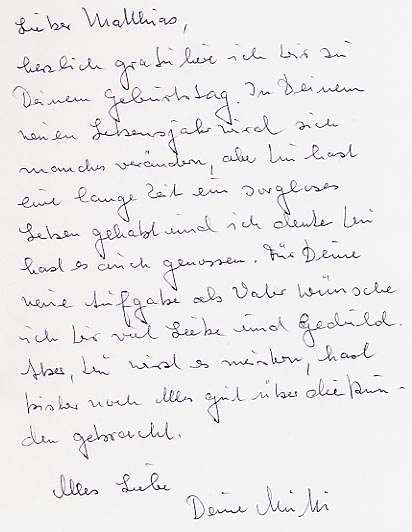 Lieber Matthias,
herzlich gratuliere ich Dir zu
Deinem Geburtstag. In Deinem
neuen Lebensjahr wird sich
manches verändern, aber Du hast
eine lange Zeit ein sorgloses
Leben gehabt und ich denke Du
hast es auch genossen. Für Deine
neue Aufgabe als Vater wünsche
ich Dir viel Liebe und Geduld.
Aber, Du wirst es meistern, hast
bisher noch Alles gut über die Run-
den gebracht.
Alles Liebe
Deine